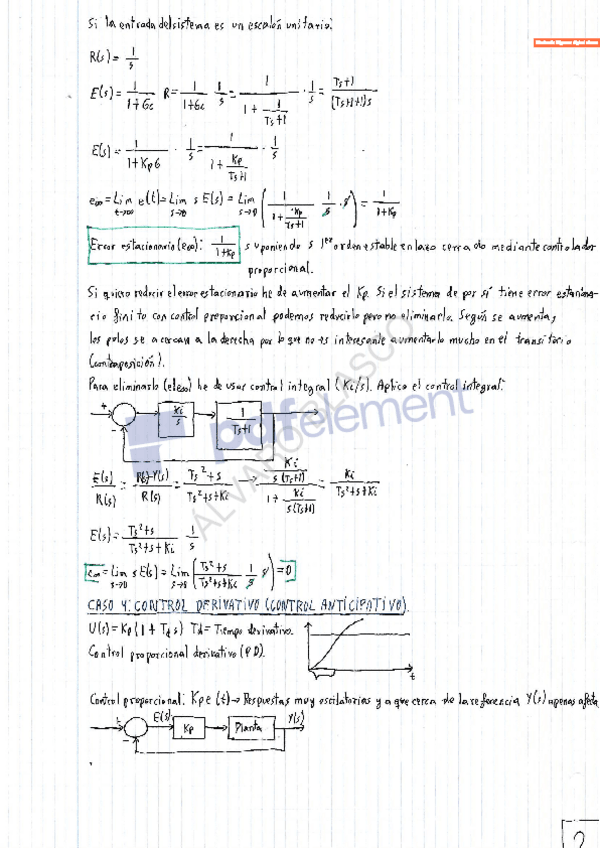 Si la entrada del sistema es un escalón unitario:
R(s) = 1/s
E(s) = 1/(1+Gc) R = 1/(1+Gc) 1/s = 1/(1 + 1/(Ts+1)) · 1/s = (Ts+1)/((Ts+1+1)s)
E(s) = 1/(1+KpG) · 1/s = 1/(1 + Kp/(Ts+1)) · 1/s
e∞ = Lim t→∞ e(t) = Lim s→0 s E(s) = Lim s→0 (1/(1 + Kp/(Ts+1)) 1/s · s) = 1/(1+Kp)
Error estacionario (e∞): 1/(1+Kp) suponiendo s 1er orden estable en lazo cerrado mediante controlador
proporcional.
Si quiero reducir el error estacionario he de aumentar el Kp. Si el sistema de por sí tiene error estaciona-
rio finito con control proporcional podemos reducirlo pero no eliminarlo. Según se aumenta,
los polos se acercan a la derecha por lo que no es interesante aumentarlo mucho en el transitorio
(contraposición).
Para eliminarlo (el e∞) he de usar control integral (Ki/s). Aplico el control integral:
+ - Ki/s 1/(Ts+1)
pdfelement
ALVARO BLASCO
E(s)/R(s) = (R(s)-Y(s))/R(s) = (Ts²+s)/(Ts²+s+Ki) → (Ki/(s(Ts+1)))/(1 + Ki/(s(Ts+1))) = Ki/(Ts²+s+Ki)
E(s) = (Ts²+s)/(Ts²+s+Ki) 1/s
e∞ = Lim s→0 s E(s) = Lim s→0 ((Ts²+s)/(Ts²+s+Ki) 1/s s) = 0
CASO 4: CONTROL DERIVATIVO (CONTROL ANTICIPATIVO).
U(s) = Kp(1 + Td s) Td = Tiempo derivativo.
Control proporcional derivativo (PD).
t
Control proporcional: Kp e(t) → Respuestas muy oscilatorias ya que cerca de la referencia Y(s) apenas afecta
+ - E(s) Kp Planta Y(s)
2